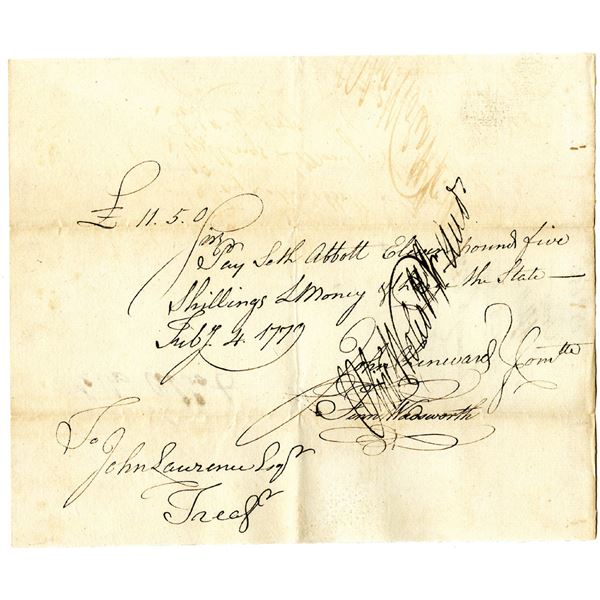 £ 11.5.0
Sir
Pay Seth Abbott Eleven pounds five
Shillings L Money & Charge the State —
Feby. 4. 1779
John Chenward } Comtte
Fenn Wadsworth
To
John Lawrence Esqr
Treasr